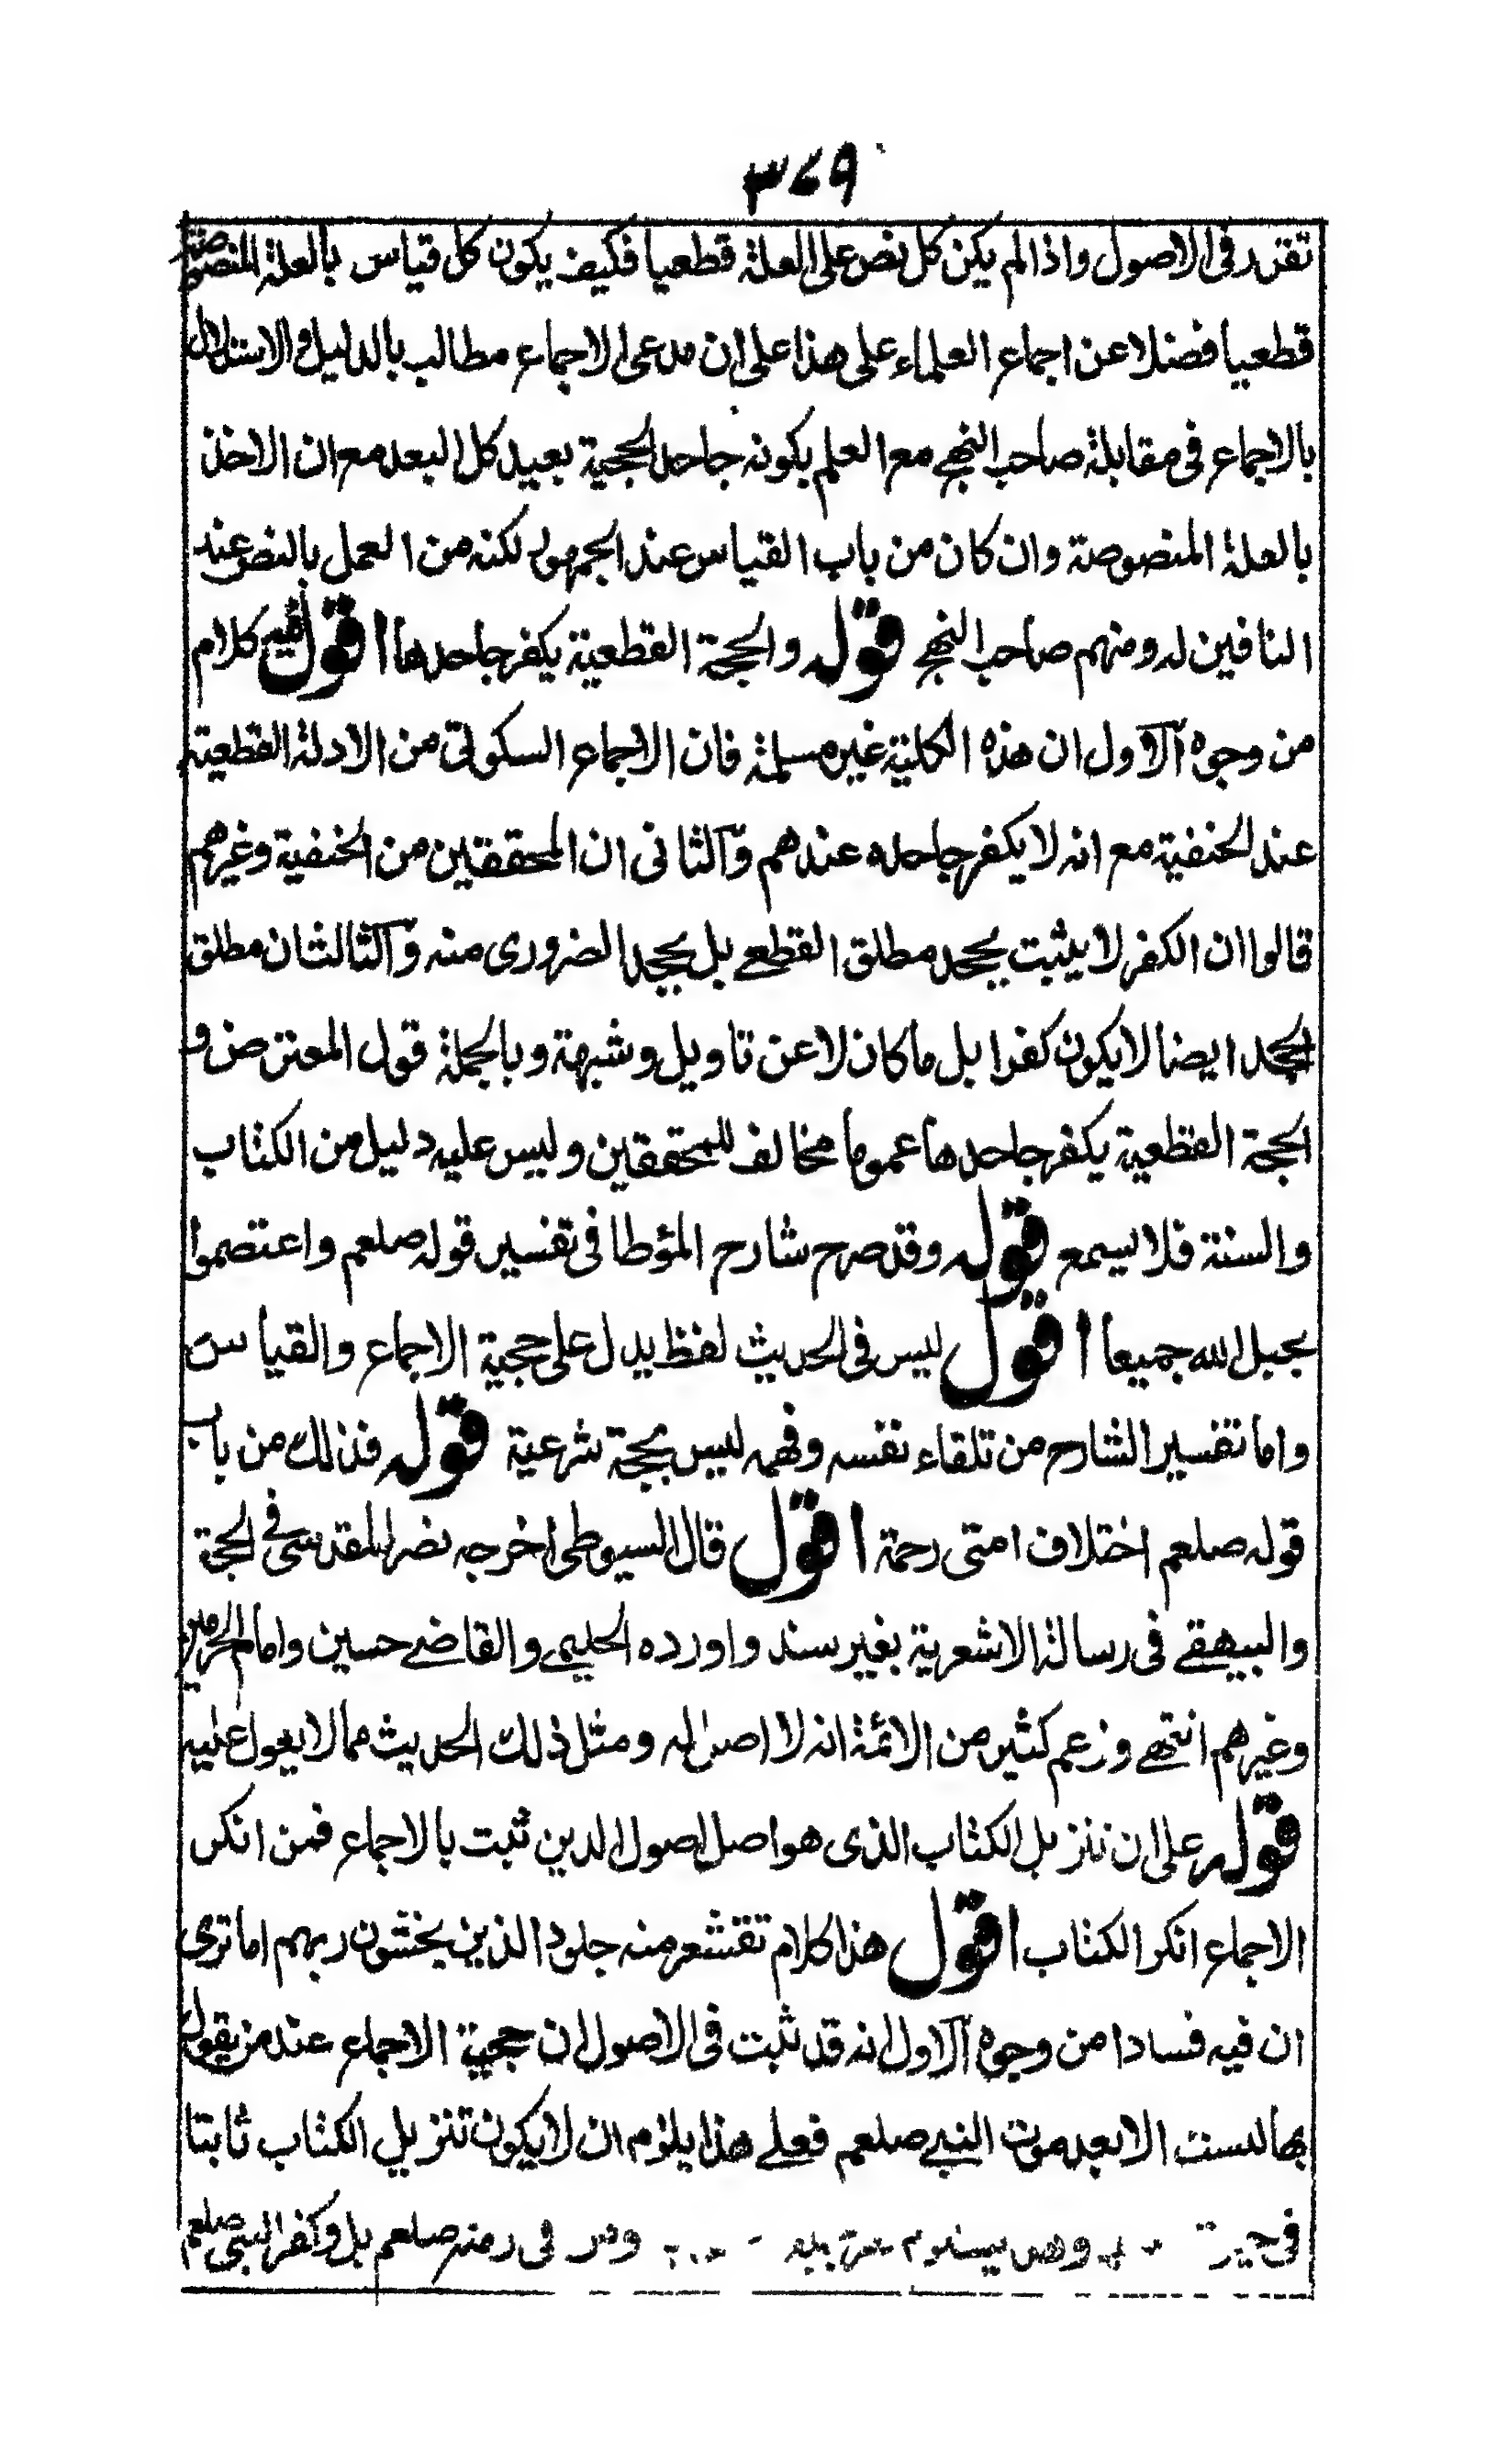 ٣٤٩
تقرر في الاصول واذا لم يكن كل نص على العلة قطعيا فكيف يكون كل قياس بالعلة المنصوصة
قطعيا فضلا عن اجماع العلماء على هذا على ان مدعي الاجماع مطالب بالدليل والاستدلال
بالاجماع في مقابلة صاحب النهج مع العلم بكونه جاحد الحجية بعيد كل البعد مع ان الاخذ
بالعلة المنصوصة وان كان من باب القياس عند الجمهور لكنه من العمل بالنص عند
النافين له ومنهم صاحب النهج قوله والحجة القطعية يكفر جاحدها اقول فيه كلام
من وجوه الاول ان هذه الكلية غير مسلمة فان الاجماع السكوتي من الادلة القطعية
عند الحنفية مع انه لا يكفر جاحده عندهم والثاني ان المحققين من الحنفية وغيرهم
قالوا ان الكفر لا يثبت بجحد مطلق القطعي بل بجحد الضروري منه والثالث ان مطلق
الجحد ايضا لا يكون كفرا بل ما كان لا عن تاويل وشبهة وبالجملة قول المعترض و
الحجة القطعية يكفر جاحدها عموما مخالف للمحققين وليس عليه دليل من الكتاب
والسنة فلا يسمع قوله وقد صرح شارح المؤطا في تفسير قوله صلعم واعتصموا
بحبل الله جميعا اقول ليس في الحديث لفظ يدل على حجية الاجماع والقياس
واما تفسير الشارح من تلقاء نفسه وفهمه ليس بحجة شرعية قوله فذلك من باب
قوله صلعم اختلاف امتي رحمة اقول قال السيوطي اخرجه نصر المقدسي في الحجة
والبيهقي في رسالة الاشعرية بغير سند واورده الحليمي والقاضي حسين وامام الحرمين
وغيرهم انتهى وزعم كثير من الائمة انه لا اصل له ومثل ذلك الحديث مما لا يعول عليه
قوله على ان تنزيل الكتاب الذي هو اصل اصول الدين ثبت بالاجماع فمن انكر
الاجماع انكر الكتاب اقول هذا كلام تقشعر منه جلود الذين يخشون ربهم اما ترى
ان فيه فسادا من وجوه الاول انه قد ثبت في الاصول ان حجية الاجماع عند من يقول
بها ليست الا بعد موت النبي صلعم فعلى هذا يلزم ان لا يكون تنزيل الكتاب ثابتا
في وهل يستلزم في زمنه صلعم بل وكفر النبي صلعم